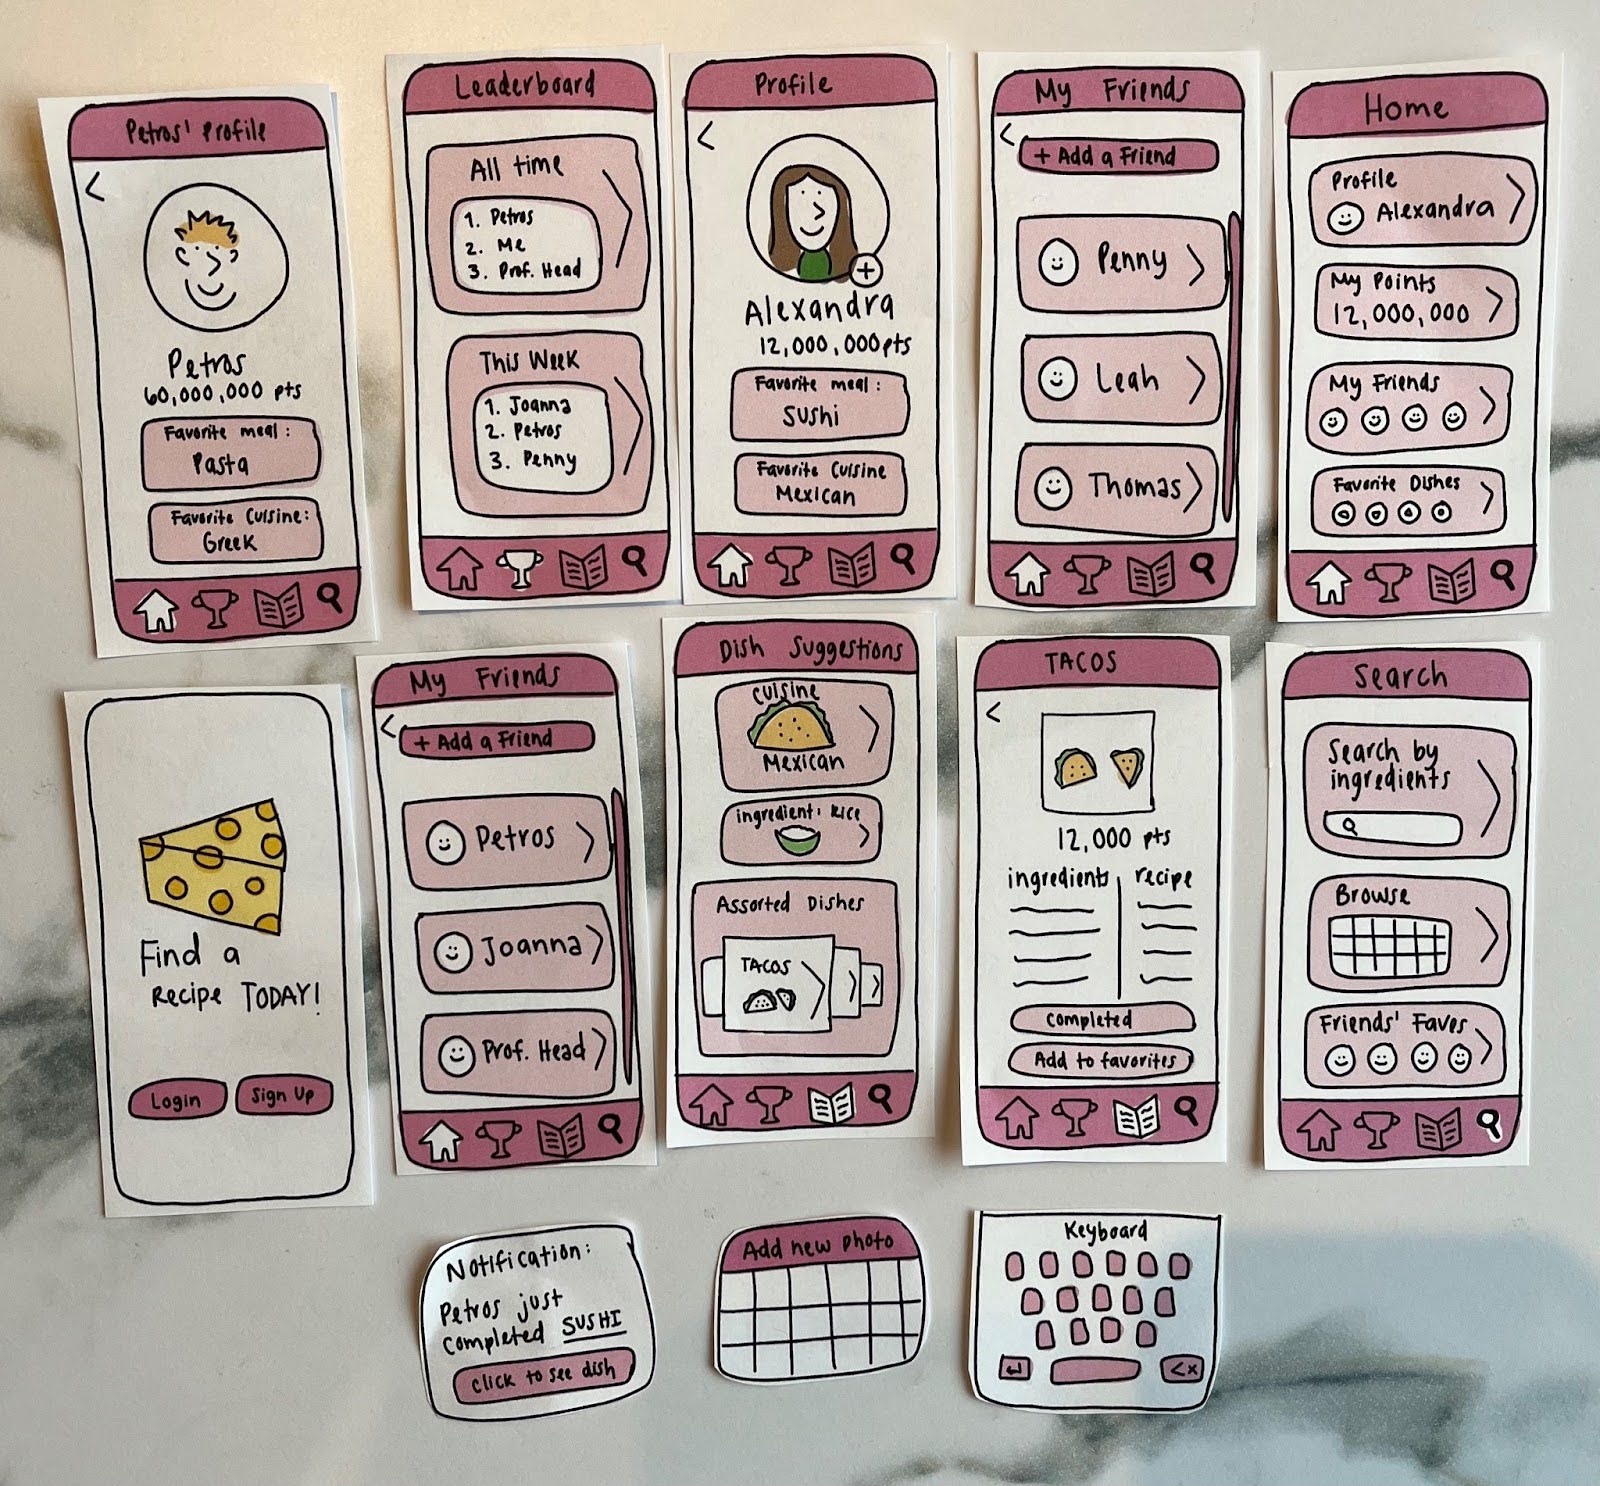 Petros' Profile
<
Petros
60,000,000 pts
Favorite meal:
Pasta
Favorite Cuisine:
Greek
Leaderboard
All time
1. Petros
2. Me
3. Prof. Head
This Week
1. Joanna
2. Petros
3. Penny
Profile
<
+
Alexandra
12,000,000 pts
Favorite meal:
Sushi
Favorite Cuisine
Mexican
My Friends
<
+ Add a Friend
Penny
Leah
Thomas
Home
Profile
Alexandra
My Points
12,000,000
My Friends
Favorite Dishes
Find a
Recipe TODAY!
Login
Sign Up
My Friends
<
+ Add a Friend
Petros
Joanna
Prof. Head
Dish Suggestions
Cuisine
Mexican
ingredient: Rice
Assorted Dishes
TACOS
TACOS
<
12,000 pts
ingredients
recipe
Completed
Add to favorites
Search
Search by
ingredients
Browse
Friends' Faves
Notification:
Petros just
completed SUSHI
Click to see dish
Add new photo
Keyboard